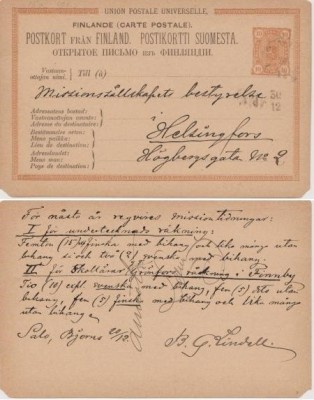 UNION POSTALE UNIVERSELLE.
FINLANDE (CARTE POSTALE).
POSTKORT FRÅN FINLAND. POSTIKORTTI SUOMESTA.
ОТКРЫТОЕ ПИСЬМО изъ ФИНЛЯНДІИ.
Till (à)
Missionssällskapets bestyrelse
Adressens bostad:
Vastaanottajan asunto:
Adresse du destinataire:
Bestämmelse ort:
Meno paikka:
Lieu de destination:
Adresslandet:
Meno maa:
Pays de destination:
Helsingfors
Högbergsgata № 2
För nästa år reqvireras missionstidningar:
I för undertecknads räkning:
Femton (15) finska med bihang och lika många utan
bihang; och två (2) svenska med bihang.
II för räkning i Finnby
Tio (10) expl. svenska med bihang, fem (5) utan
bihang, fem (5) finska med bihang och lika många
utan bihang.
Salo, Bjerno
B. G. Lindell.